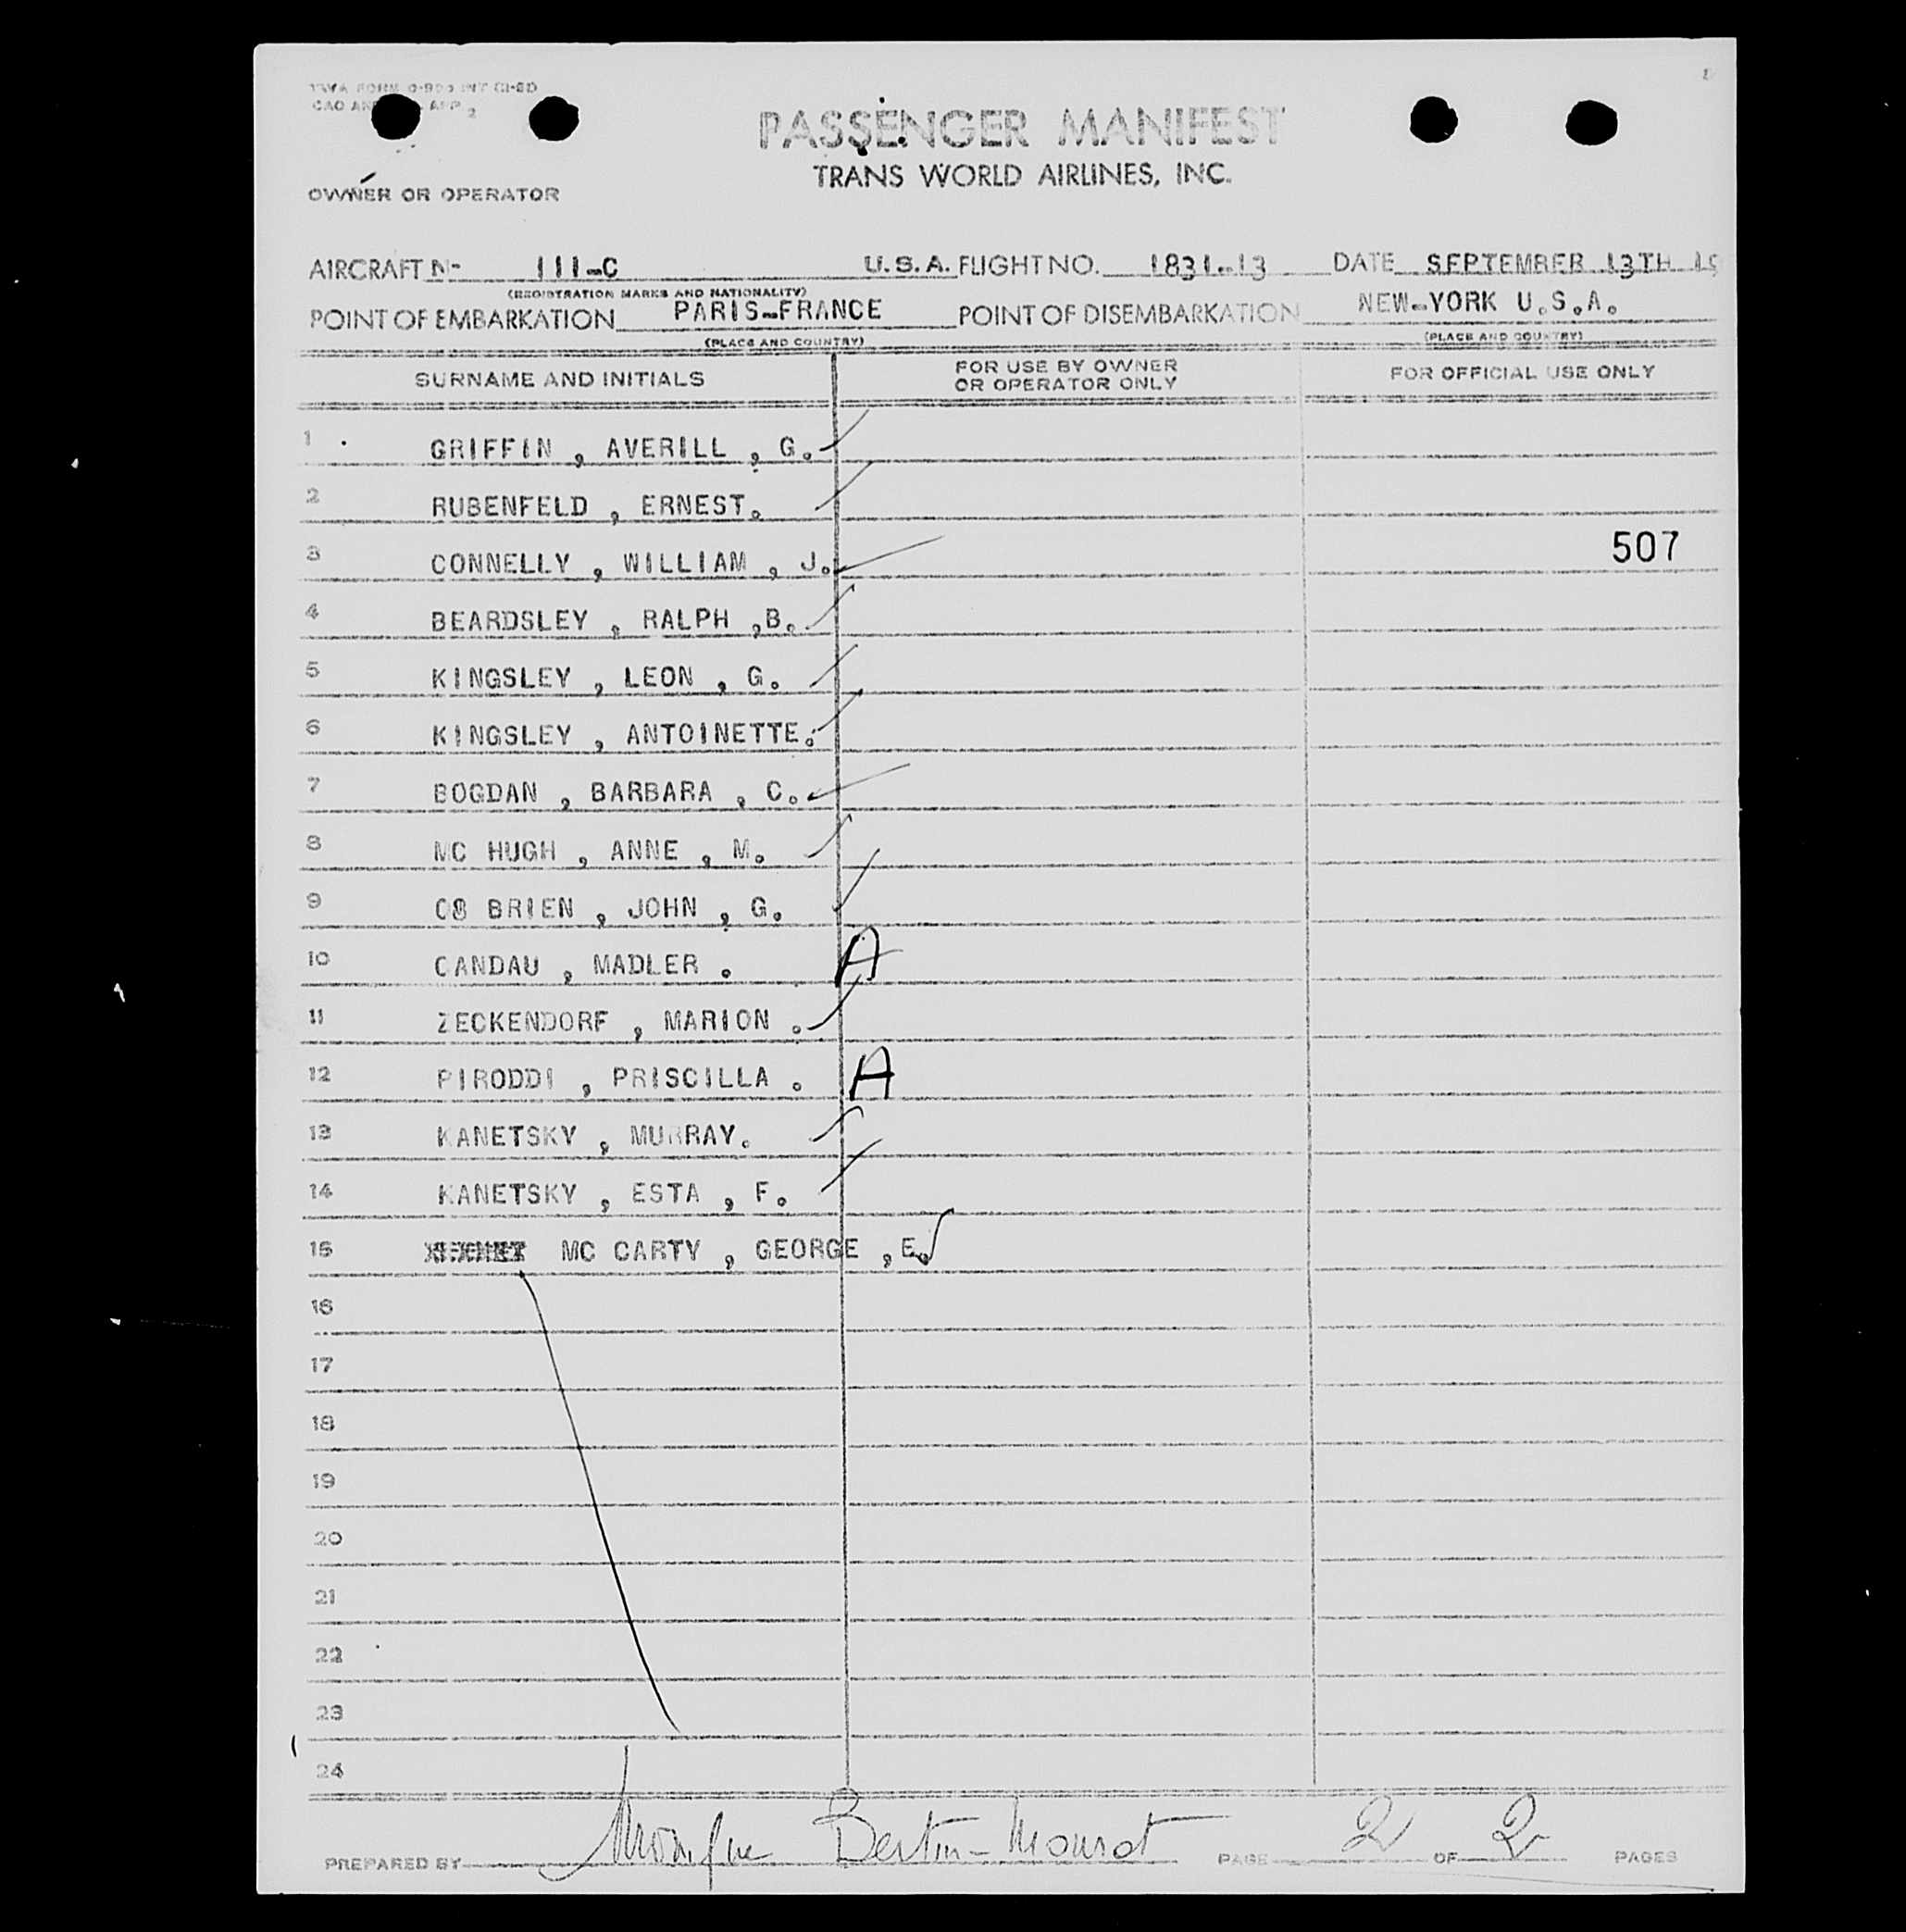 TWA FORM
CAO
PASSENGER MANIFEST
TRANS WORLD AIRLINES, INC.
OWNER OR OPERATOR
AIRCRAFT N- 111-C U.S.A. FLIGHT NO. 1831-13 DATE SEPTEMBER 13TH 19
(REGISTRATION MARKS AND NATIONALITY)
POINT OF EMBARKATION PARIS-FRANCE POINT OF DISEMBARKATION NEW-YORK U.S.A.
(PLACE AND COUNTRY) (PLACE AND COUNTRY)
SURNAME AND INITIALS FOR USE BY OWNER OR OPERATOR ONLY FOR OFFICIAL USE ONLY
1 GRIFFIN , AVERILL , G.
2 RUBENFELD , ERNEST.
3 CONNELLY , WILLIAM , J. 507
4 BEARDSLEY , RALPH ,B.
5 KINGSLEY , LEON , G.
6 KINGSLEY , ANTOINETTE.
7 BOGDAN , BARBARA , C.
8 MC HUGH , ANNE , M.
9 BRIEN , JOHN , G.
10 CANDAU , MADLER . A
11 ZECKENDORF , MARION .
12 PIRODDI , PRISCILLA . A
13 KANETSKY , MURRAY.
14 KANETSKY , ESTA , F.
15 MC CARTY , GEORGE ,E.
16
17
18
19
20
21
22
23
24
PREPARED BY Monique Bertin-Mourot PAGE 2 OF 2 PAGES